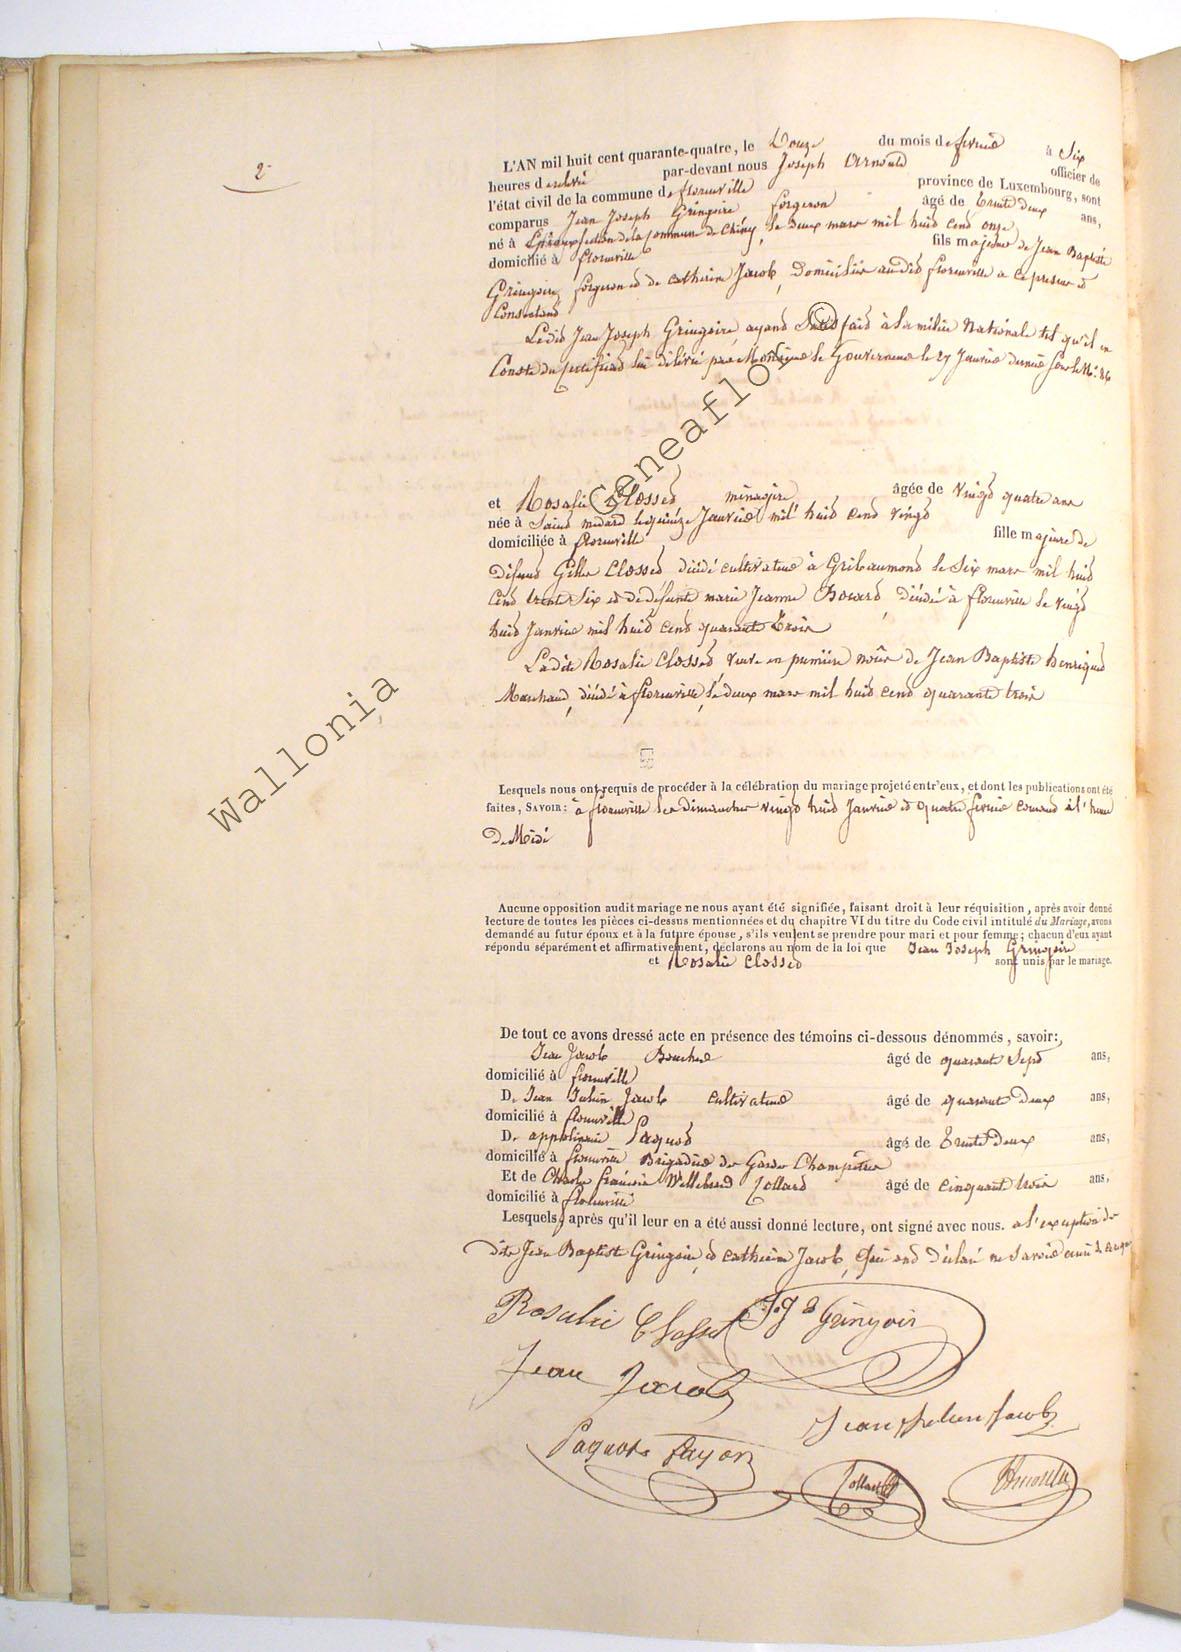 2
L'AN mil huit cent quarante-quatre, le Douze du mois de fevrier à Six
heures de relevée par-devant nous Joseph Arnould officier de
l'état civil de la commune de florenville province de Luxembourg, sont
comparus Jean Joseph Gringoire forgeron âgé de trente deux ans,
né à section de la commune de Chiny, le deux mars mil huit cent onze
domicilié à florenville fils majeur de Jean Baptiste
Gringoire, forgeron et de Catherine Jacob, Domiciliés audit florenville a ce présent et
Consentant
Ledit Jean Joseph Gringoire, ayant Satisfait à la milice Nationale tel qu'il en
Conste du certificat lui délivré par Monsieur le Gouverneur le 27 Janvier dernier sous le No. 86
© Geneaflor
et Rosalie Closset ménagère âgée de vingt quatre ans
née à Saint médard le quinze Janvier mil huit cent vingt
domiciliée à florenville fille majeure de
Défunt Gilles Closset décédé cultivateur à Gribaumont le Six mars mil huit
Cent trente Six et de défunte marie Jeanne décédée à florenville le vingt
huit Janvier mil huit cent quarante trois
Ladite Rosalie Closset veuve en première nôce de Jean Baptiste henriquet
Marchand, décédé à florenville, le deux mars mil huit cent quarante trois
Wallonia
Lesquels nous ont requis de procéder à la célébration du mariage projeté entr'eux, et dont les publications ont été
faites, SAVOIR: à florenville les dimanches vingt huit Janvier et quatre fevrier courant à l'heure
De Midi
Aucune opposition audit mariage ne nous ayant été signifiée, faisant droit à leur réquisition, après avoir donné
lecture de toutes les pièces ci-dessus mentionnées et du chapitre VI du titre du Code civil intitulé du Mariage, avons
demandé au futur époux et à la future épouse, s'ils veulent se prendre pour mari et pour femme; chacun d'eux ayant
répondu séparément et affirmativement, déclarons au nom de la loi que Jean Joseph Gringoire
et Rosalie Closset sont unis par le mariage.
De tout ce avons dressé acte en présence des témoins ci-dessous dénommés, savoir:
Jean Jacob Boucher âgé de quarante Sept ans,
domicilié à florenville
De Jean Julien Jacob Cultivateur âgé de quarante deux ans,
domicilié à florenville
De appolinaire Paquot âgé de trente deux ans,
domicilié à florenville Brigadier des Gardes Champêtres
Et de Charles françois Willebrord Collard âgé de cinquante trois ans,
domicilié à florenville
Lesquels, après qu'il leur en a été aussi donné lecture, ont signé avec nous. a l'exception des
dits Jean Baptiste Gringoire et Catherine Jacob, qui ont déclaré ne savoir
Rosalie Closset Gringoir
Jean Jacob
Jean Julien Jacob
Paquot Collard Arnould